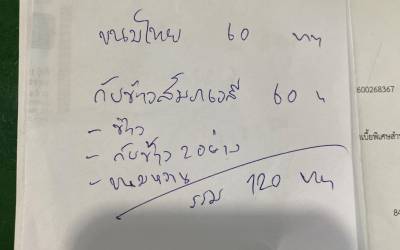 ขนมไทย 60 บาท
กับข้าวสัมภเวสี 60 บ
- ข้าว
- กับข้าว 2 อย่าง
- ขนมหวาน
รวม 120 บาท
600268367
เบี้ยพิเศษสำ
84